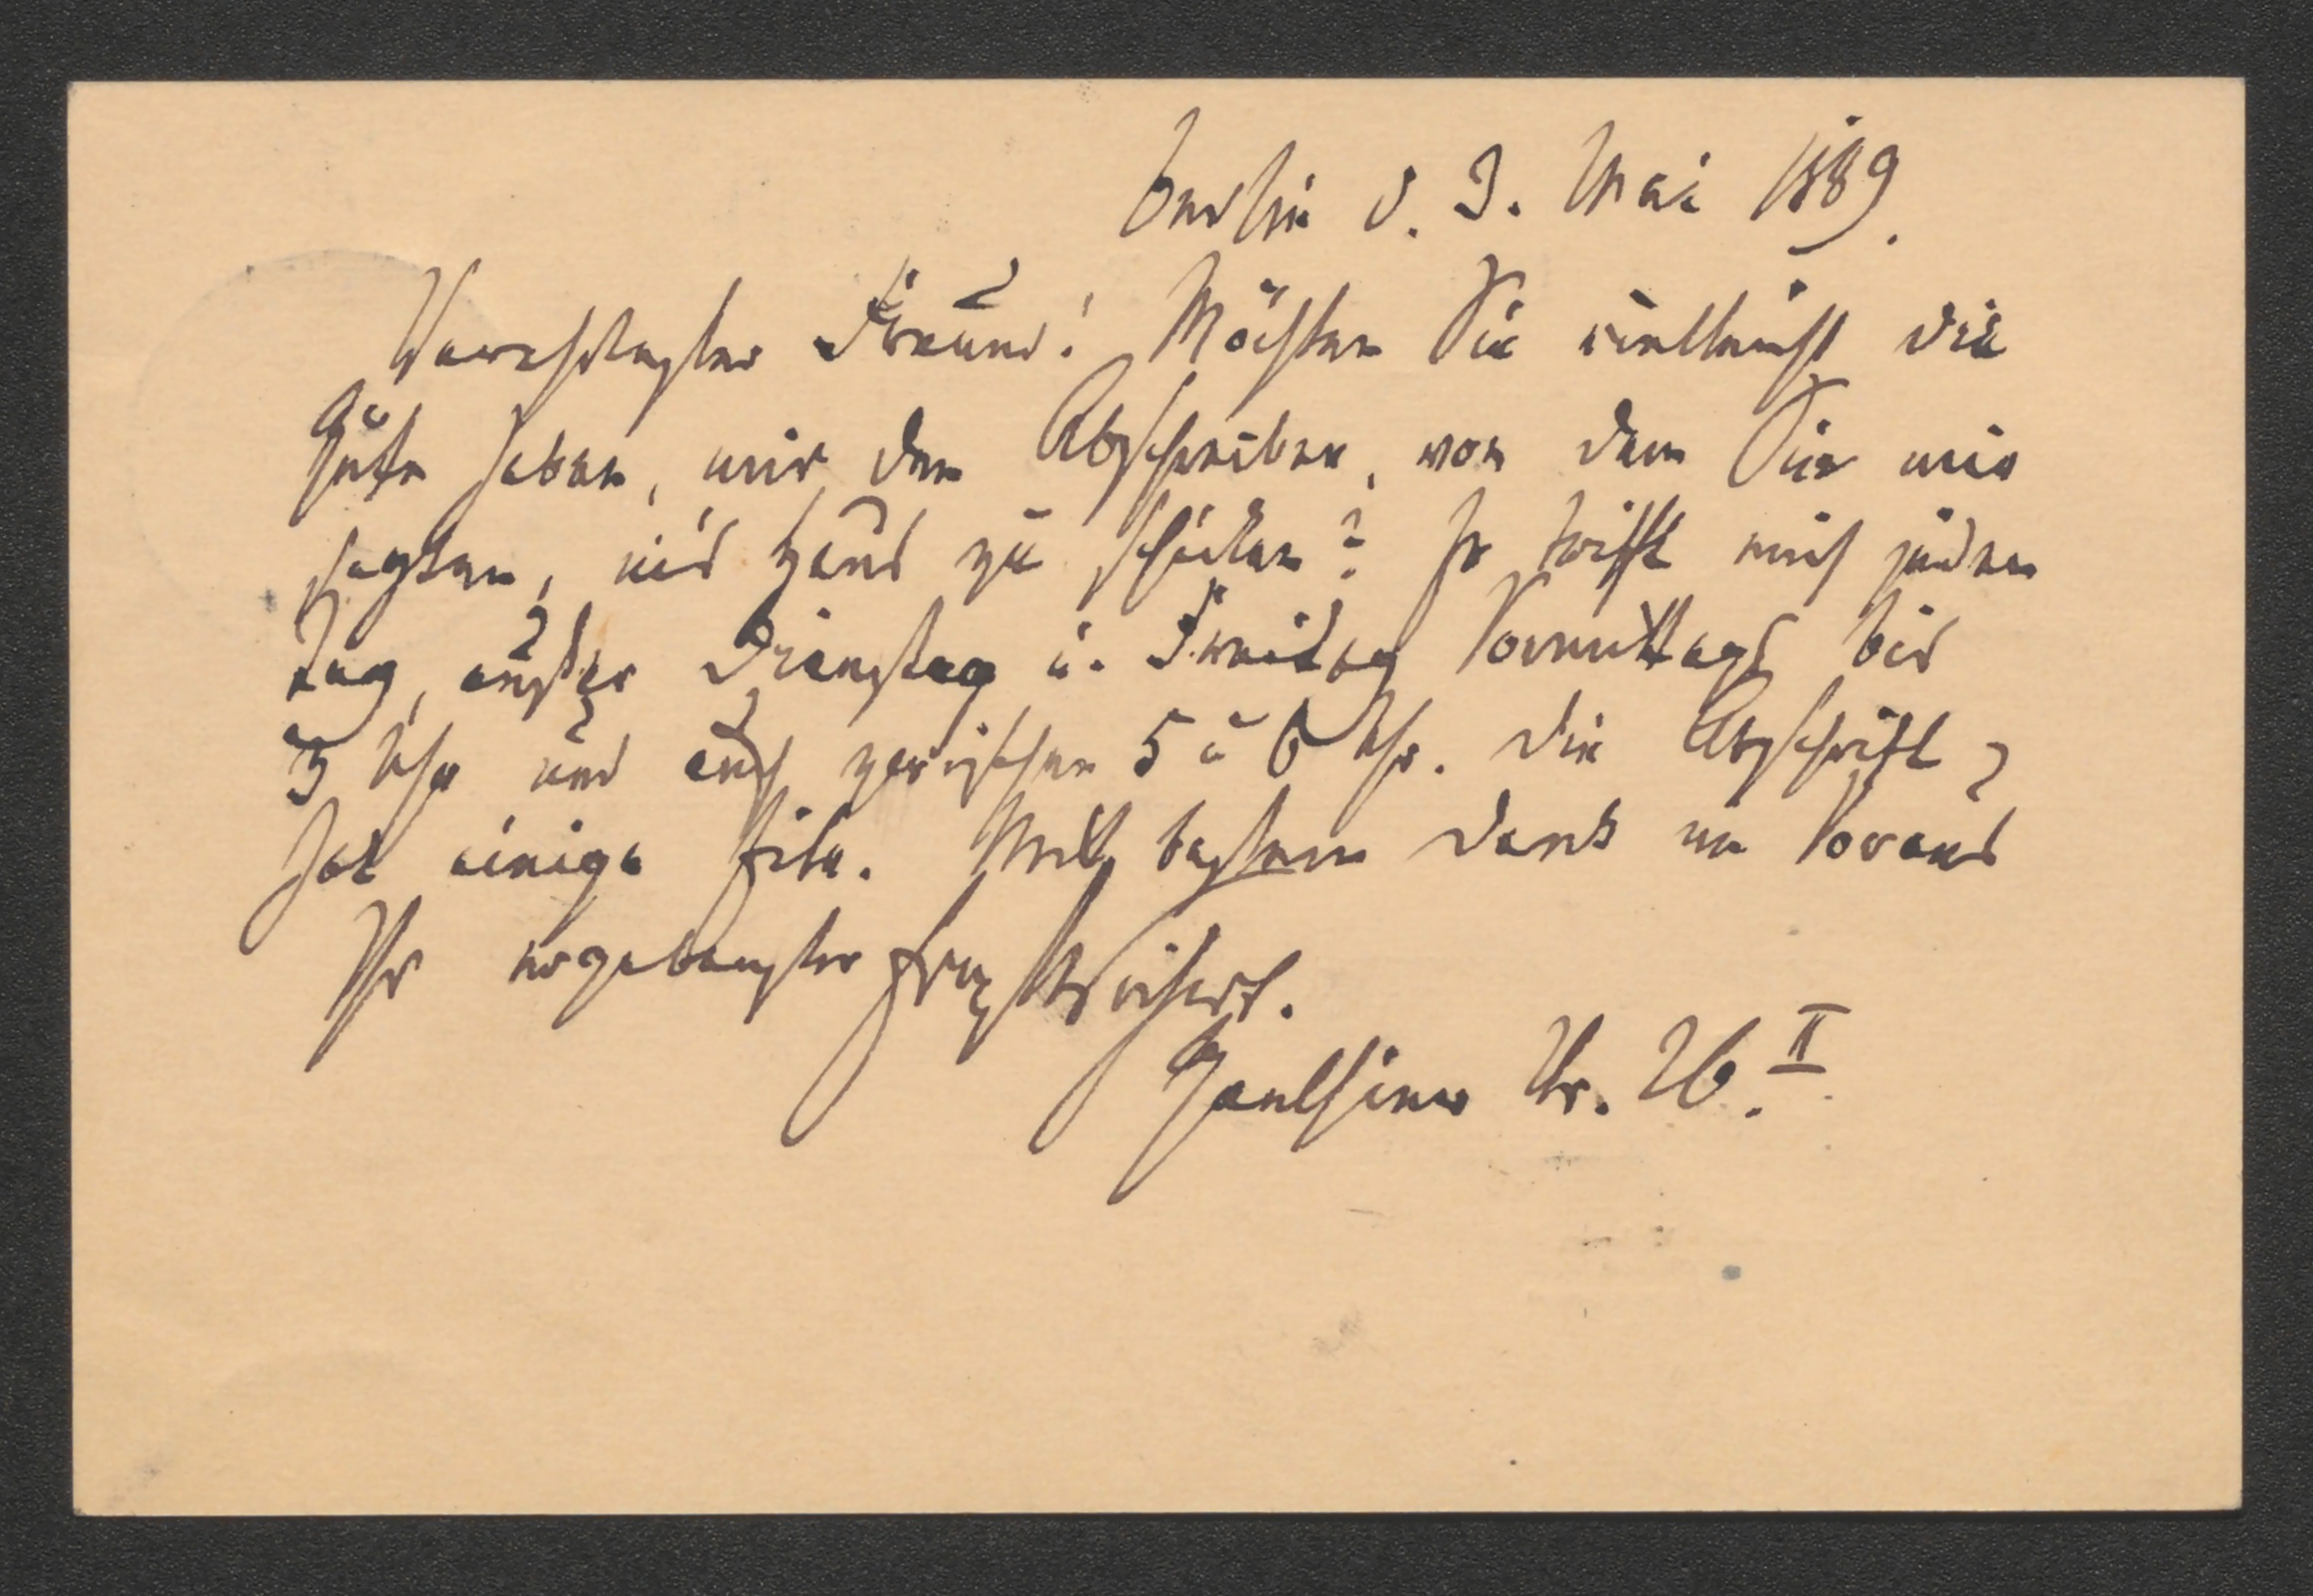 Berlin d. 3. Mai 1889.
Verehrtester Freund! Möchten Sie vielleicht die
Güte haben, mir den Abschreiber, von dem Sie mir
sagten, ins Haus zu schicken? Er trifft mich jeden
Tag, außer Dienstag u. Freitag Vormittags bis
3 Uhr und auch zwischen 5 u 6 Uhr. Die Abschrift
hat einige Eile. Mit bestem Dank im Voraus
Ihr ergebenster
Nr. 26. II